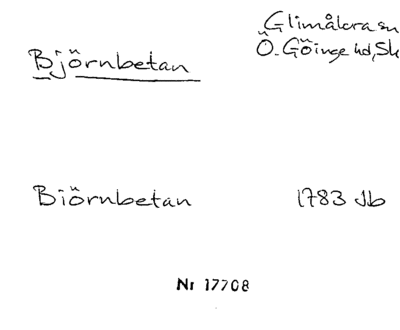 Glimåkra sn
Björnbetan
Ö. Göinge hd, Sk
Biörnbetan
1783 Jb
Nr 17708